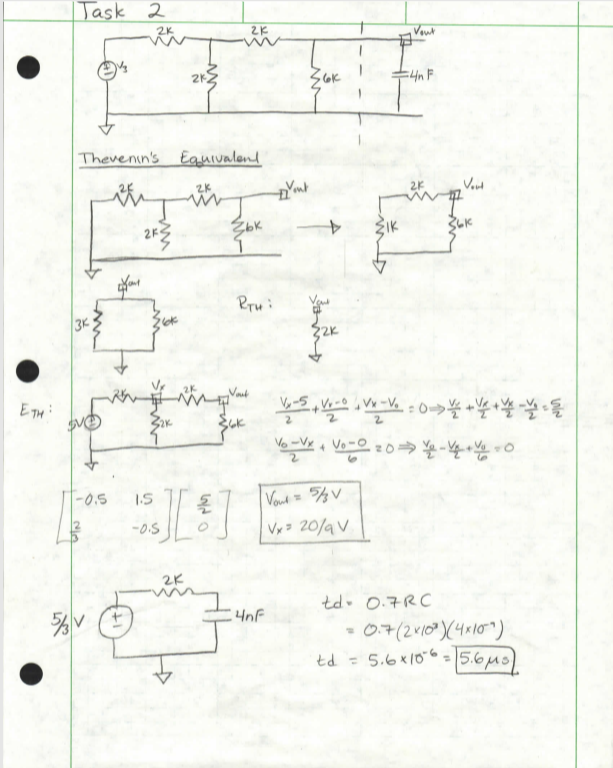 Task 2
2K 2K Vout
V3 2K 6K 4nF
Thevenin's Equivalent
2K 2K Vout 2K Vout
2K 6K 1K 6K
Vout RTH: Vout
3K 6K 2K
ETH: 2K Vx 2K Vout
5V 2K 6K
Vx-5/2 + Vx-0/2 + Vx-Vo/2 = 0 ⇒ Vx/2 + Vx/2 + Vx/2 - Vo/2 = 5/2
Vo-Vx/2 + Vo-0/6 = 0 ⇒ Vo/2 - Vx/2 + Vo/6 = 0
[-0.5 1.5] [5/2]
[2/3 -0.5] [0]
Vout = 5/3 V
Vx = 20/9 V
2K
5/3 V 4nF
td = 0.7RC
= 0.7(2x10³)(4x10⁻⁹)
td = 5.6x10⁻⁶ = 5.6µs